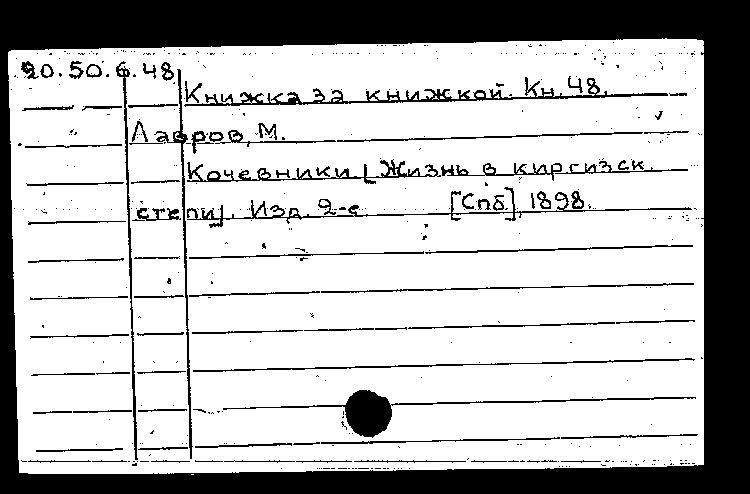 20.50.6.48
Книжка за книжкой. Кн. 48.
Лавров, М.
Кочевники [Жизнь в киргизск.
степи]. Изд. 2-е [Спб], 1898.